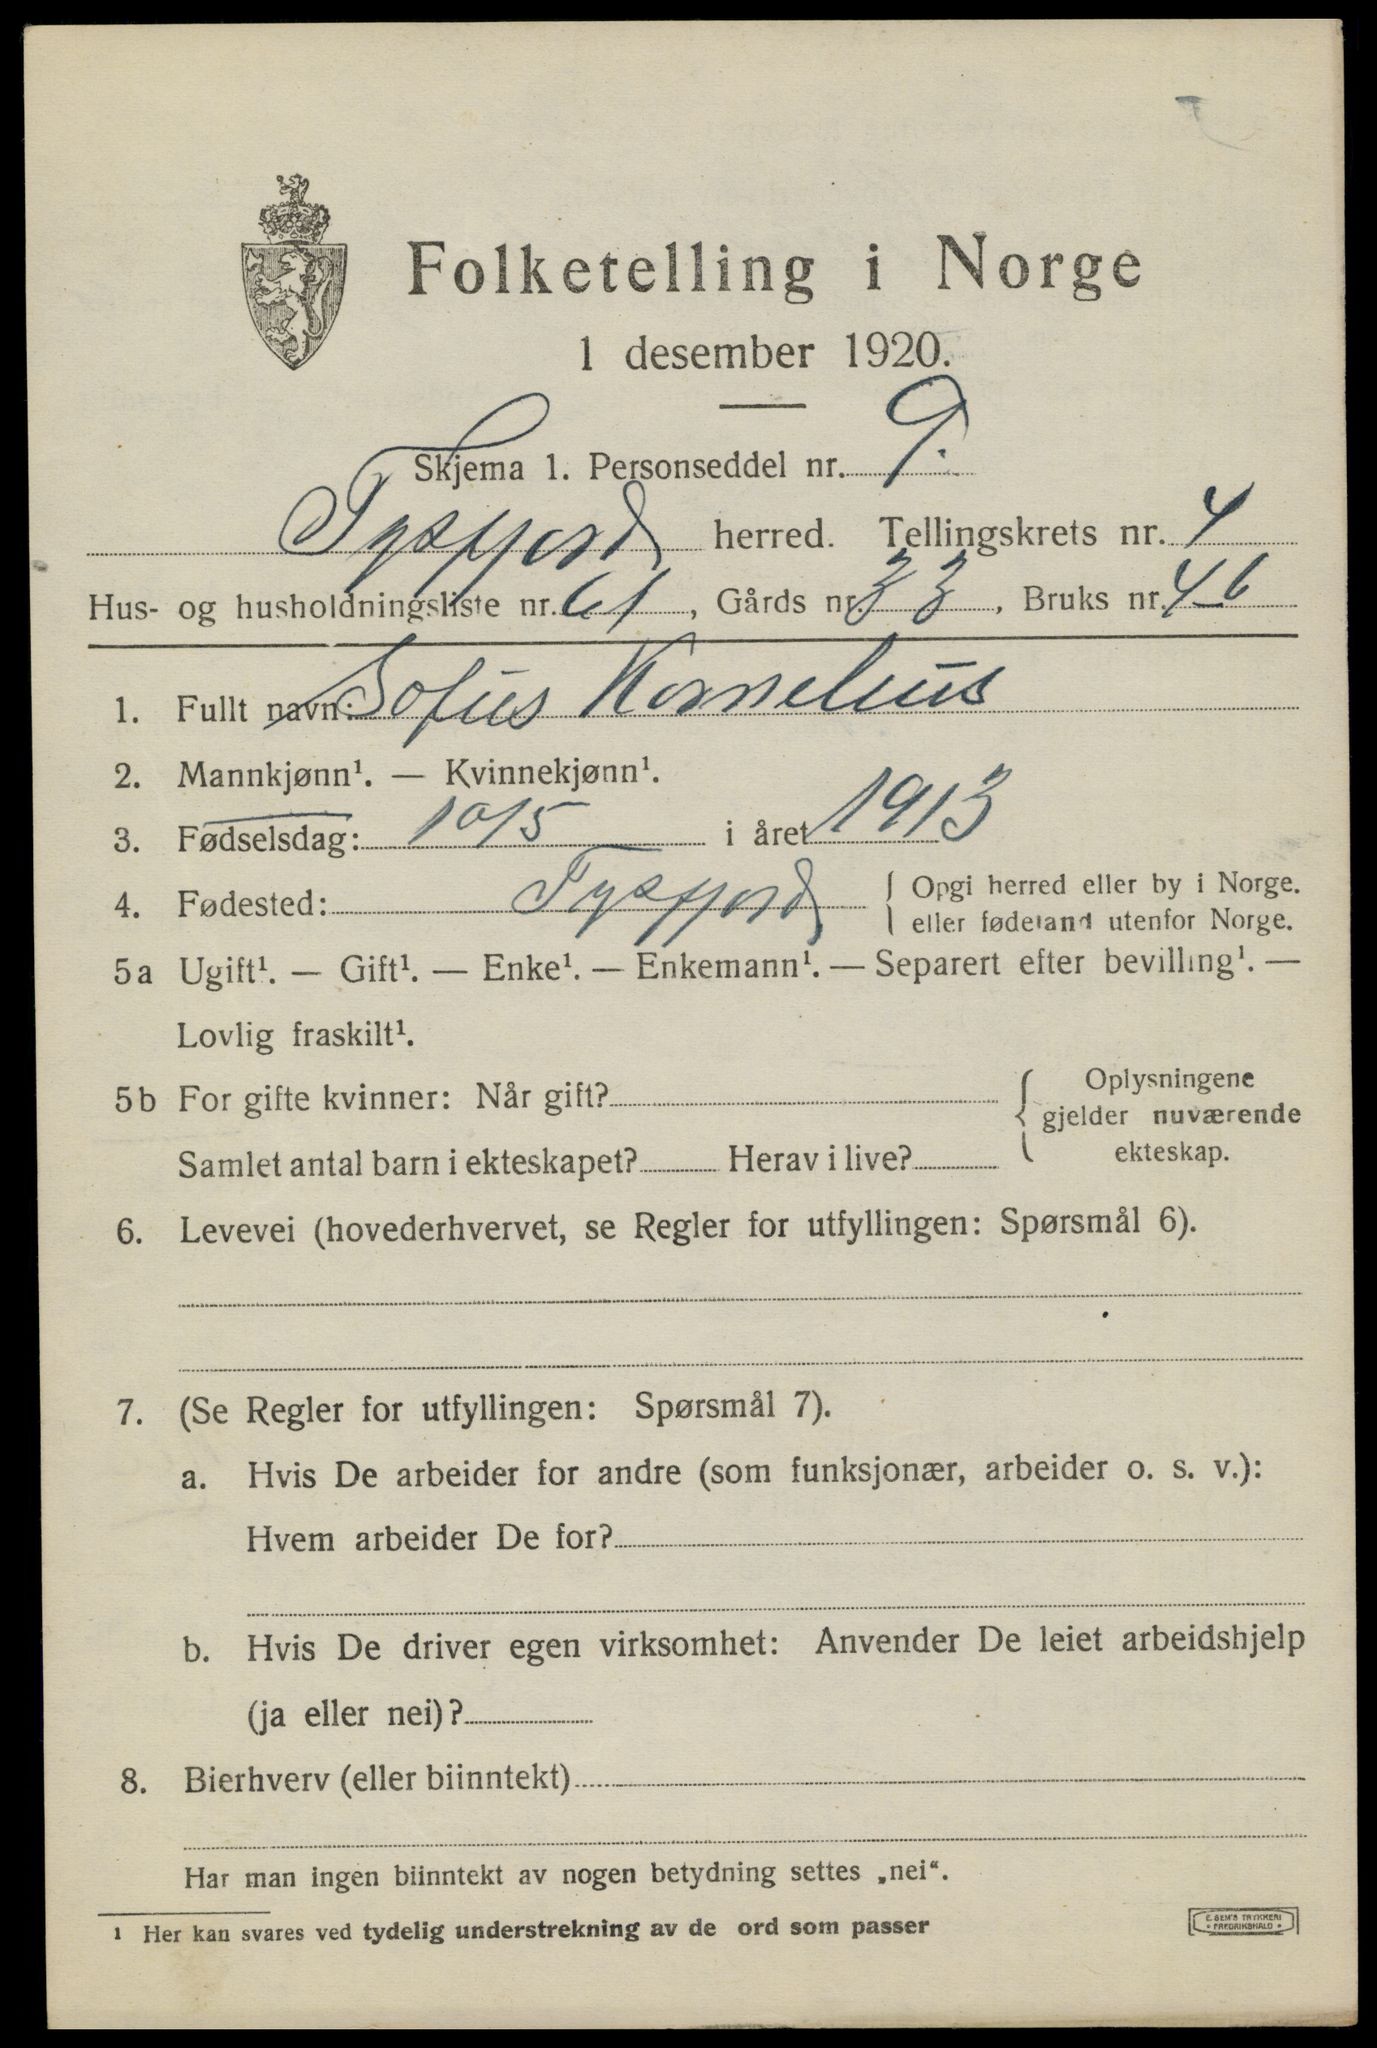 Folketelling i Norge
1 desember 1920.
Skjema 1. Personseddel nr. 9.
Tysfjord herred. Tellingskrets nr. 4
Hus- og husholdningsliste nr. 61, Gårds nr. 33, Bruks nr. 46
1. Fullt navn: Sofius Kornelius
2. Mannkjønn¹. — Kvinnekjønn¹.
3. Fødselsdag: 10/5 i året 1913
4. Fødested: Tysfjord { Opgi herred eller by i Norge.
eller fødeland utenfor Norge.
5a Ugift¹. — Gift¹. — Enke¹. — Enkemann¹. — Separert efter bevilling¹. —
Lovlig fraskilt¹.
5b For gifte kvinner: Når gift? { Oplysningene
gjelder nuværende
Samlet antal barn i ekteskapet? Herav i live? ekteskap.
6. Levevei (hovederhvervet, se Regler for utfyllingen: Spørsmål 6).
7. (Se Regler for utfyllingen: Spørsmål 7).
a. Hvis De arbeider for andre (som funksjonær, arbeider o. s. v.):
Hvem arbeider De for?
b. Hvis De driver egen virksomhet: Anvender De leiet arbeidshjelp
(ja eller nei)?
8. Bierhverv (eller biinntekt)
Har man ingen biinntekt av nogen betydning settes „nei“.
¹ Her kan svares ved tydelig understrekning av de ord som passer
E. SEM'S TRYKKERI
FREDRIKSHALD